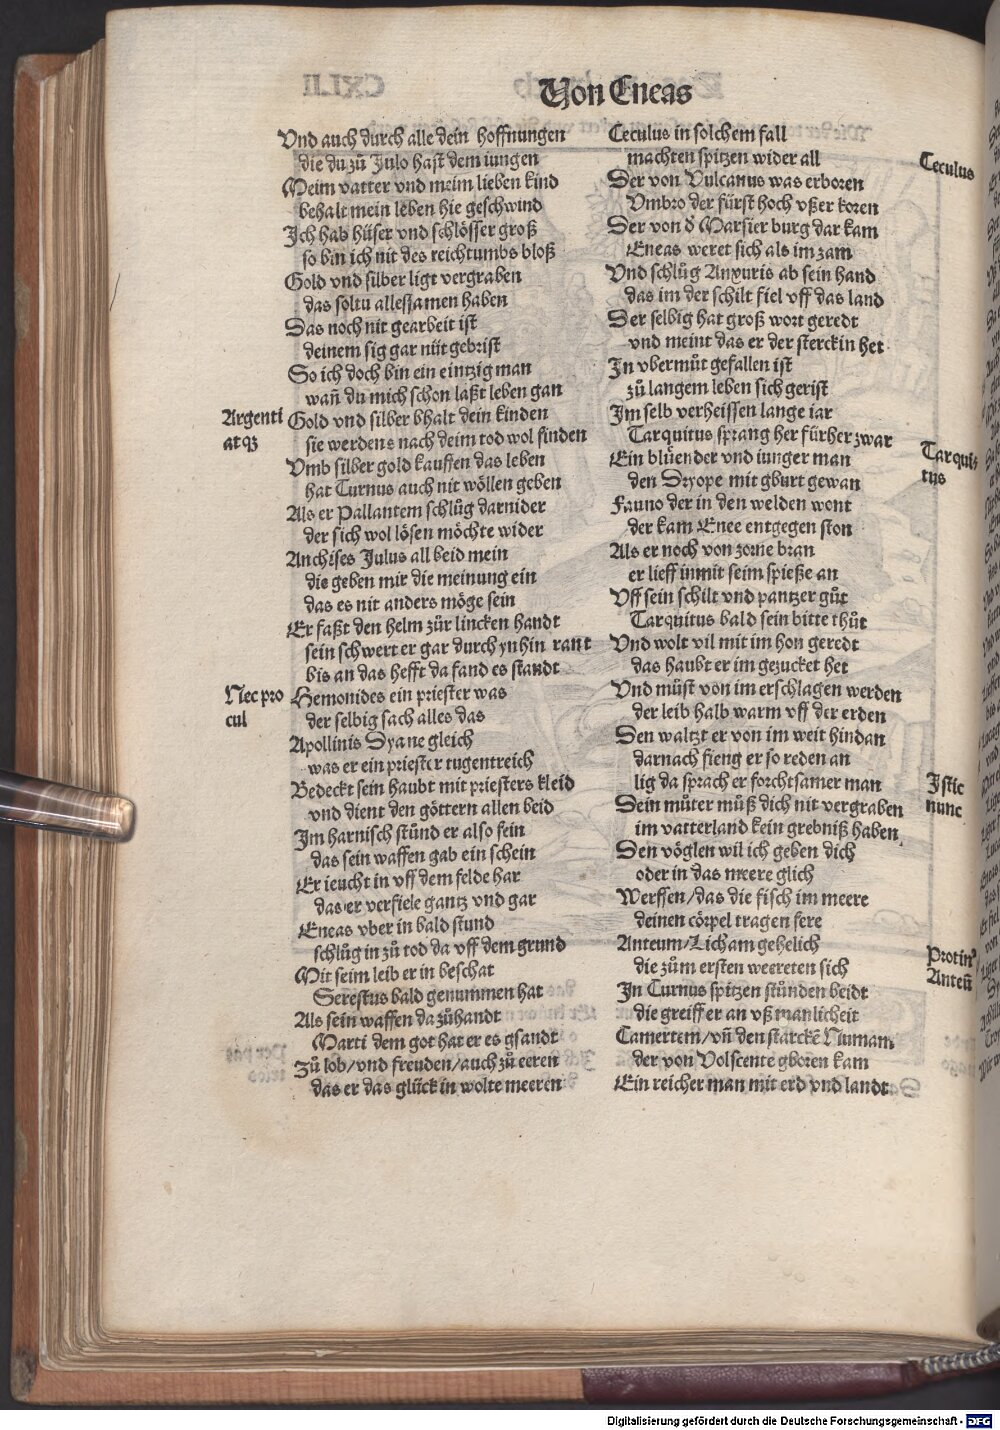 Von Eneas
Vnd auch durch alle dein hoffnungen
die du zů Julo hast dem iungen
Meim vatter vnd meim lieben kind
behalt mein leben hie geschwind
Ich hab hüser vnd schlösser groß
so bin ich nit des reichtumbs bloß
Gold vnd silber ligt vergraben
das soltu allesamen haben
Das noch nit gearbeit ist
deinem sig gar nüt gebrist
So ich doch bin ein eintzig man
wañ du mich schon laßt leben gan
Argenti
atqꝫ
Gold vnd silber bhalt dein kinden
sie werdens nach deim tod wol finden
Vmb silber gold kauffen das leben
hat Turnus auch nit wöllen geben
Als er Pallantem schlůg darnider
der sich wol lösen möchte wider
Anchises Julus all beid mein
die geben mir die meinung ein
das es nit anders möge sein
Er faßt den helm zůr lincken handt
sein schwert er gar durch ynhin rant
bis an das hefft da fand es standt
Nec pro
cul
Hemonides ein priester was
der selbig sach alles das
Apollinis Dyane gleich
was er ein priester tugentreich
Bedeckt sein haubt mit priesters kleid
vnd dient den göttern allen beid
Im harnisch stůnd er also fein
das sein waffen gab ein schein
Er ieucht in vff dem felde har
das er verfiele gantz vnd gar
Eneas vber in bald stund
schlůg in zů tod da vff dem grund
Mit seim leib er in beschat
Serestus bald genummen hat
Als sein waffen da zůhandt
Marti dem got hat er es gsandt
Zů lob/vnd freuden/auch zů eeren
das er das glück in wolte meeren
Ceculus in solchem fall
machten spitzen wider all
Ceculus
Der von Vulcanus was erboren
Vmbro der fürst hoch vßer koren
Der von d̉ Marsier burg dar kam
Eneas weret sich als im zam
Vnd schlůg Anxuris ab sein hand
das im der schilt fiel vff das land
Der selbig hat groß wort geredt
vnd meint das er der sterck in het
In vbermůt gefallen ist
zů langem leben sich gerist
Im selb verheissen lange iar
Tarquitus sprang her fürher zwar
Tarqui-
tus
Ein blüender vnd iunger man
den Dryope mit gburt gewan
Fauno der in den welden wont
der kam Enee entgegen ston
Als er noch von zorne bran
er lieff in mit seim spieße an
Vff sein schilt vnd pantzer gůt
Tarquitus bald sein bitte thůt
Vnd wolt vil mit im hon geredt
das haubt er im gezucket het
Vnd můst von im erschlagen werden
der leib halb warm vff der erden
Den waltzt er von im weit hindan
darnach fieng er so reden an
Istic
nunc
lig da sprach er forchtsamer man
Dein můter můß dich nit vergraben
im vatterland kein grebniß haben
Den vöglen wil ich geben dich
oder in das meere glich
Werffen/das die fisch im meere
deinen cörpel tragen sere
Anteum/Licham gehelich
die zům ersten weereten sich
Protinꝰ
Anteũ
In Turnus spitzen stůnden beidt
die greiff er an vß manlicheit
Camertem/vñ den starckẽ Numam
der von Volscente gboren kam
Ein reicher man mit erd vnd landt
Digitalisierung gefördert durch die Deutsche Forschungsgemeinschaft - DFG